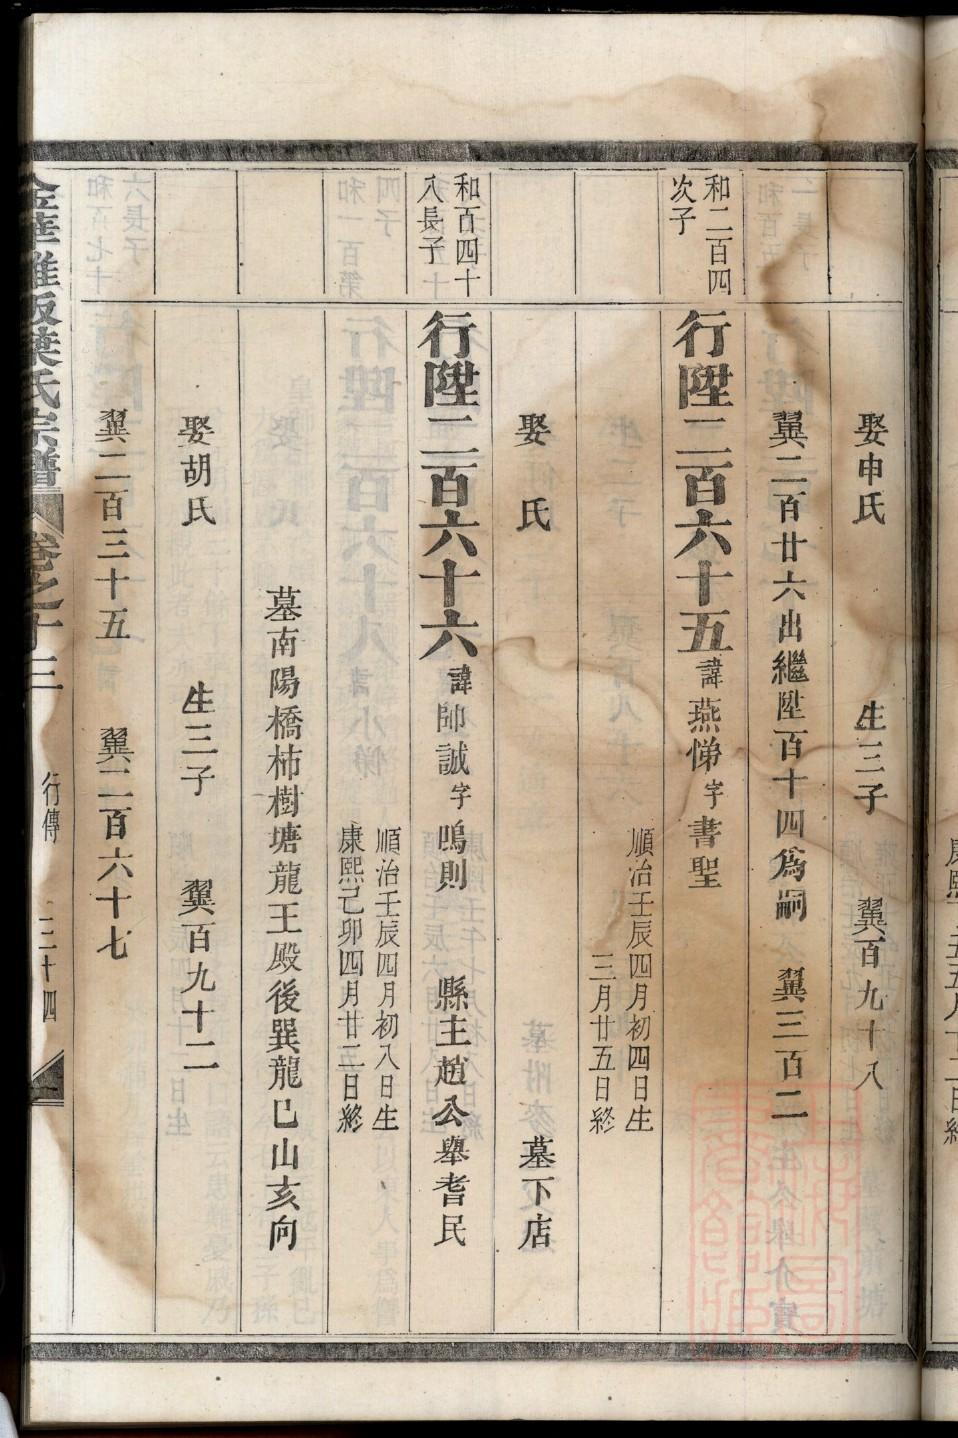 娶申氏　生三子　翼百九十八
翼二百廿六出繼陞百十四爲嗣　翼三百二
和二百四
次子
行陞二百六十五諱燕悌字書聖
順治壬辰四月初四日生
三月廿五日終
娶　氏　墓下店
和百四十
八長子
行陞二百六十六諱帥誠字鳴則　縣主趙公舉耆民
順治壬辰四月初八日生
康熙己卯四月廿三日終
墓南陽橋柿樹塘龍王殿後巽龍巳山亥向
娶胡氏　生三子　翼百九十二
翼二百三十五　翼二百六十七
金華雅畈葉氏宗譜　卷之十三　行傳　三十四